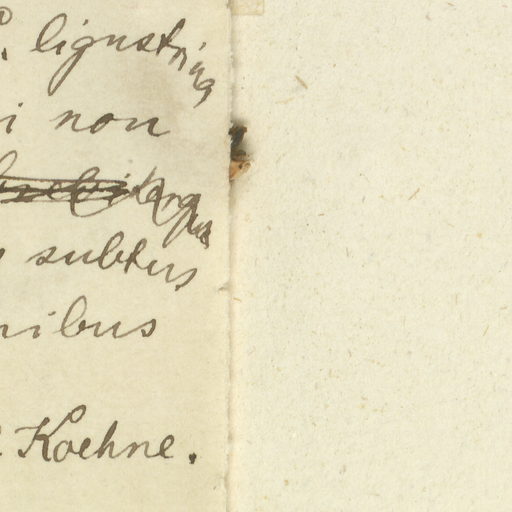 ligustrina
i non
subtus
nibus
Koehne.